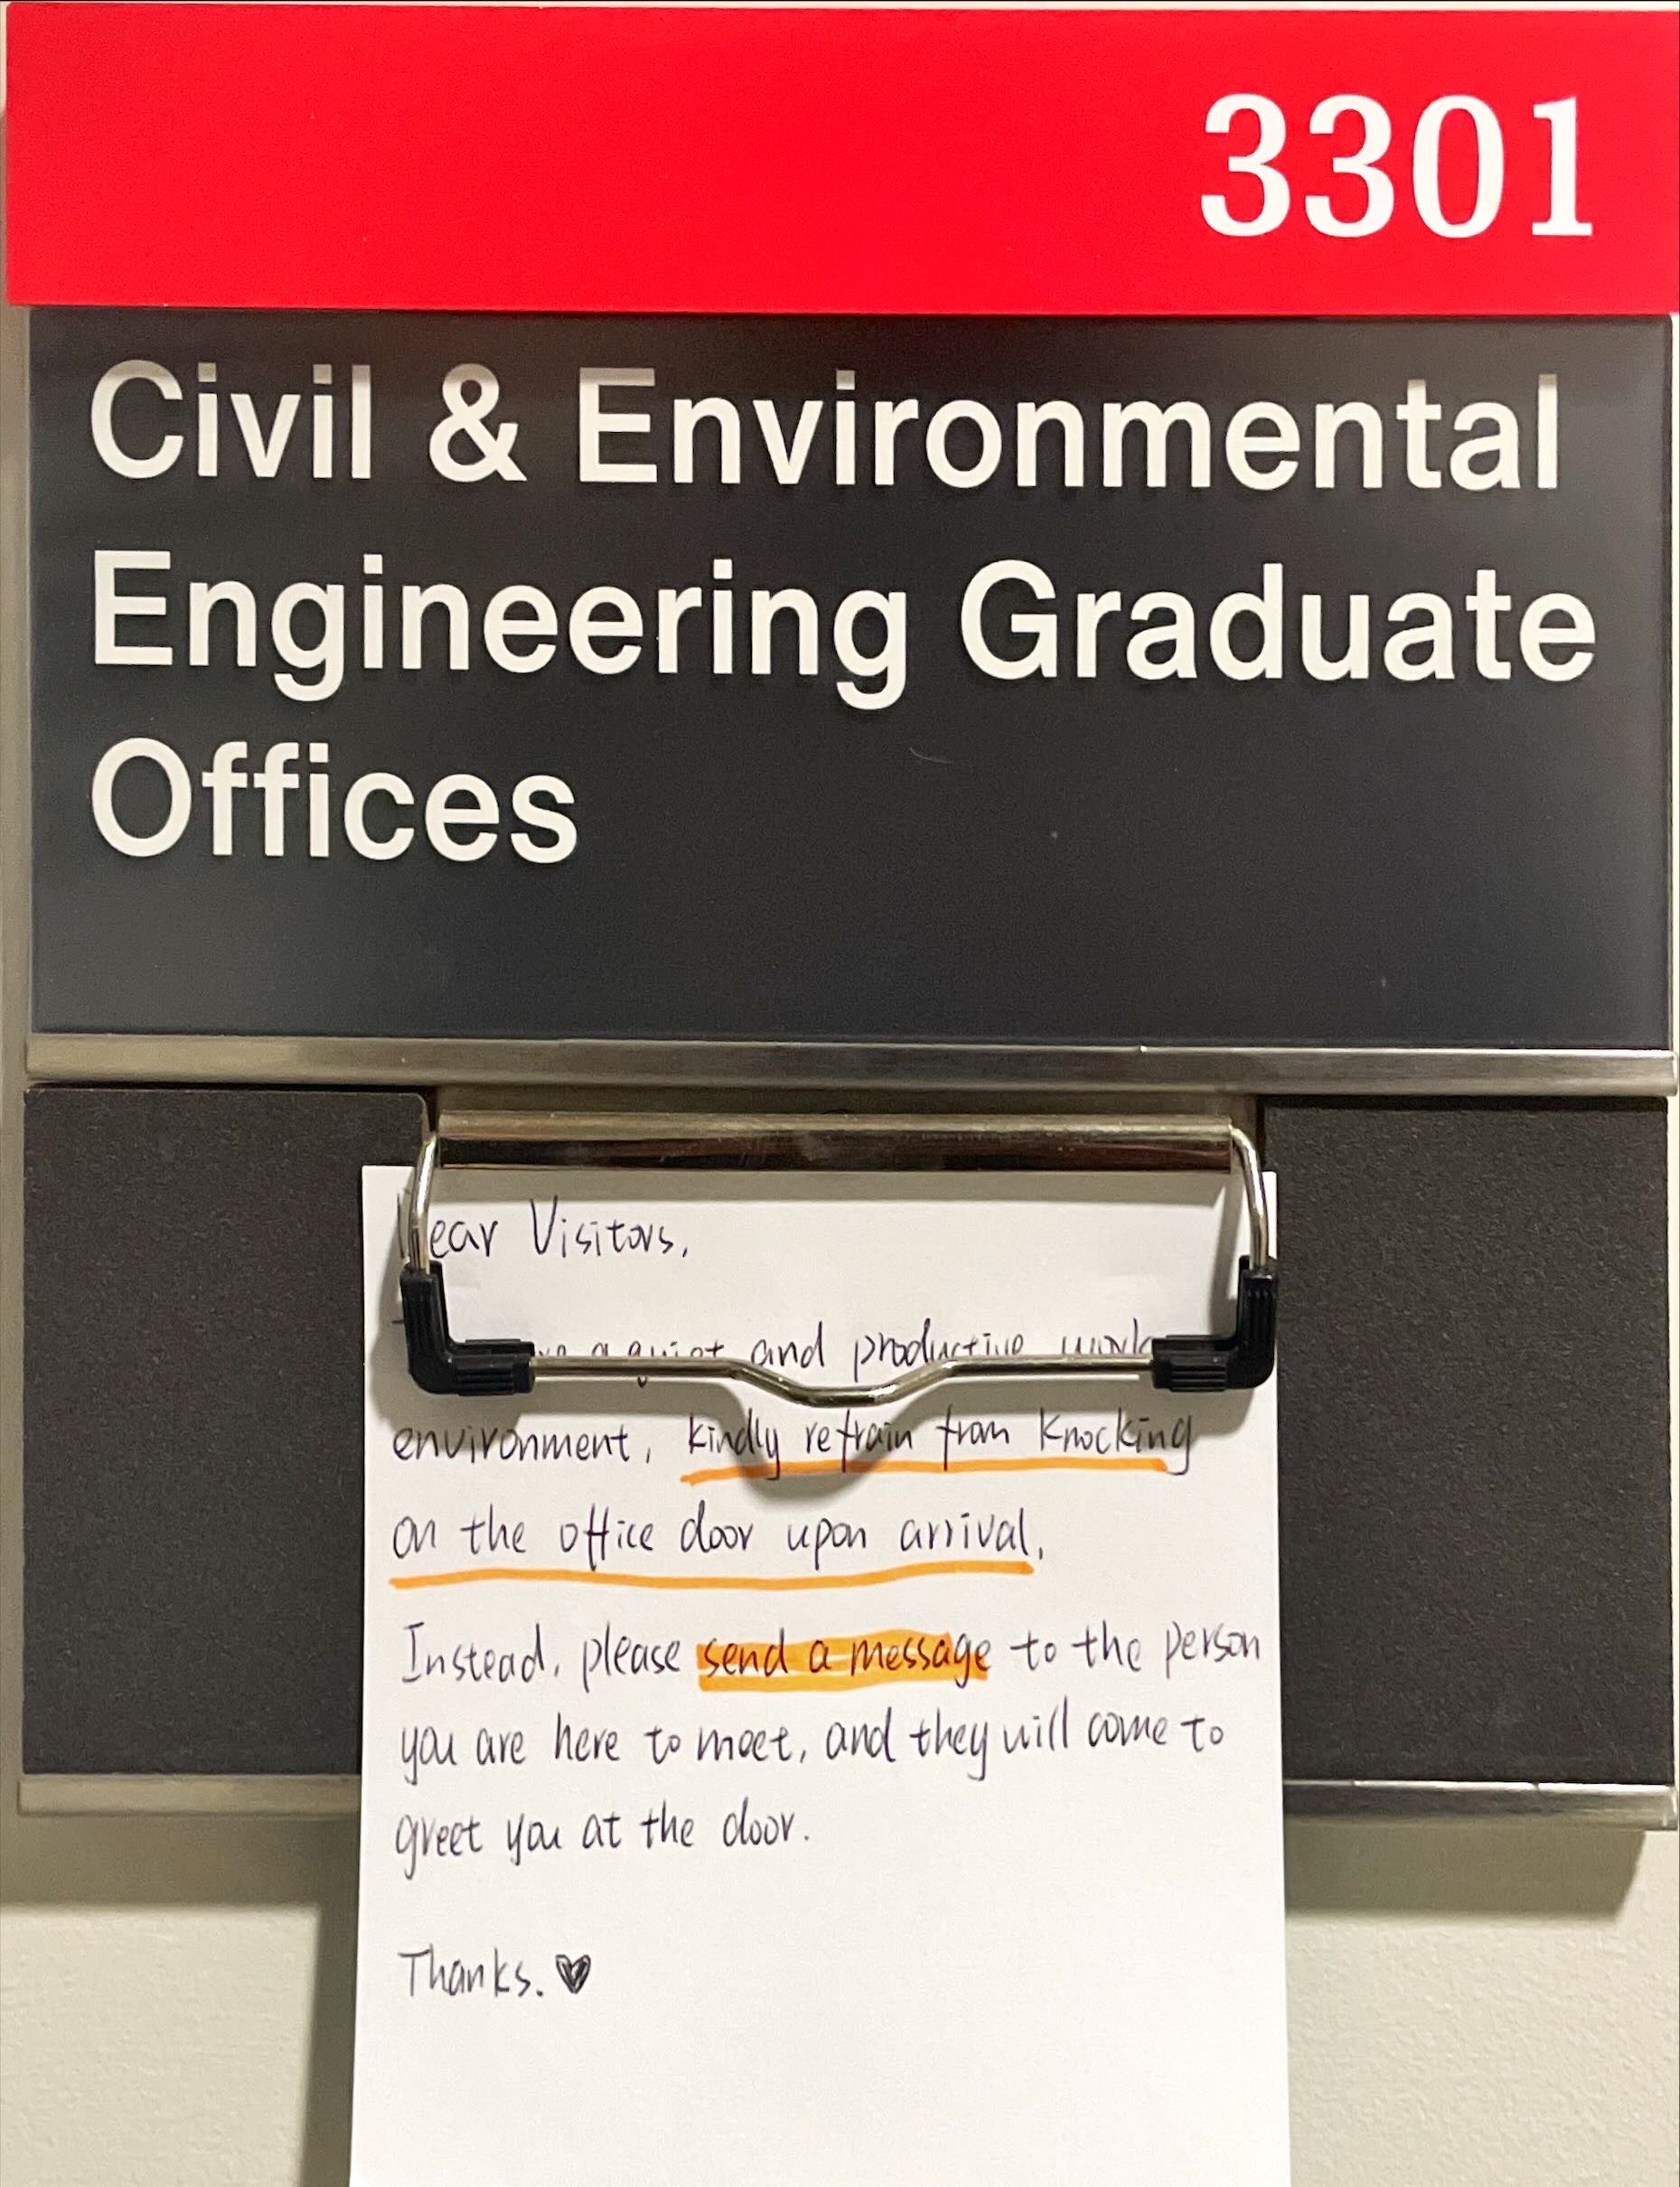 3301
Civil & Environmental
Engineering Graduate
Offices
Dear Visitors,
a quiet and productive work
environment, kindly refrain from knocking
on the office door upon arrival.
Instead, please send a message to the person
you are here to meet, and they will come to
greet you at the door.
Thanks. ♥